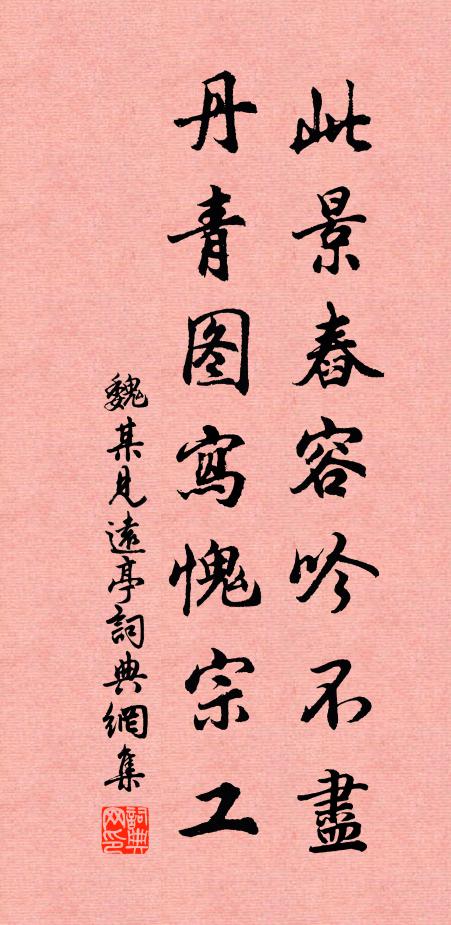 此景舂容吟不盡
丹青图寫愧宗工
魏某見遠亭詞典網集
詞典网印